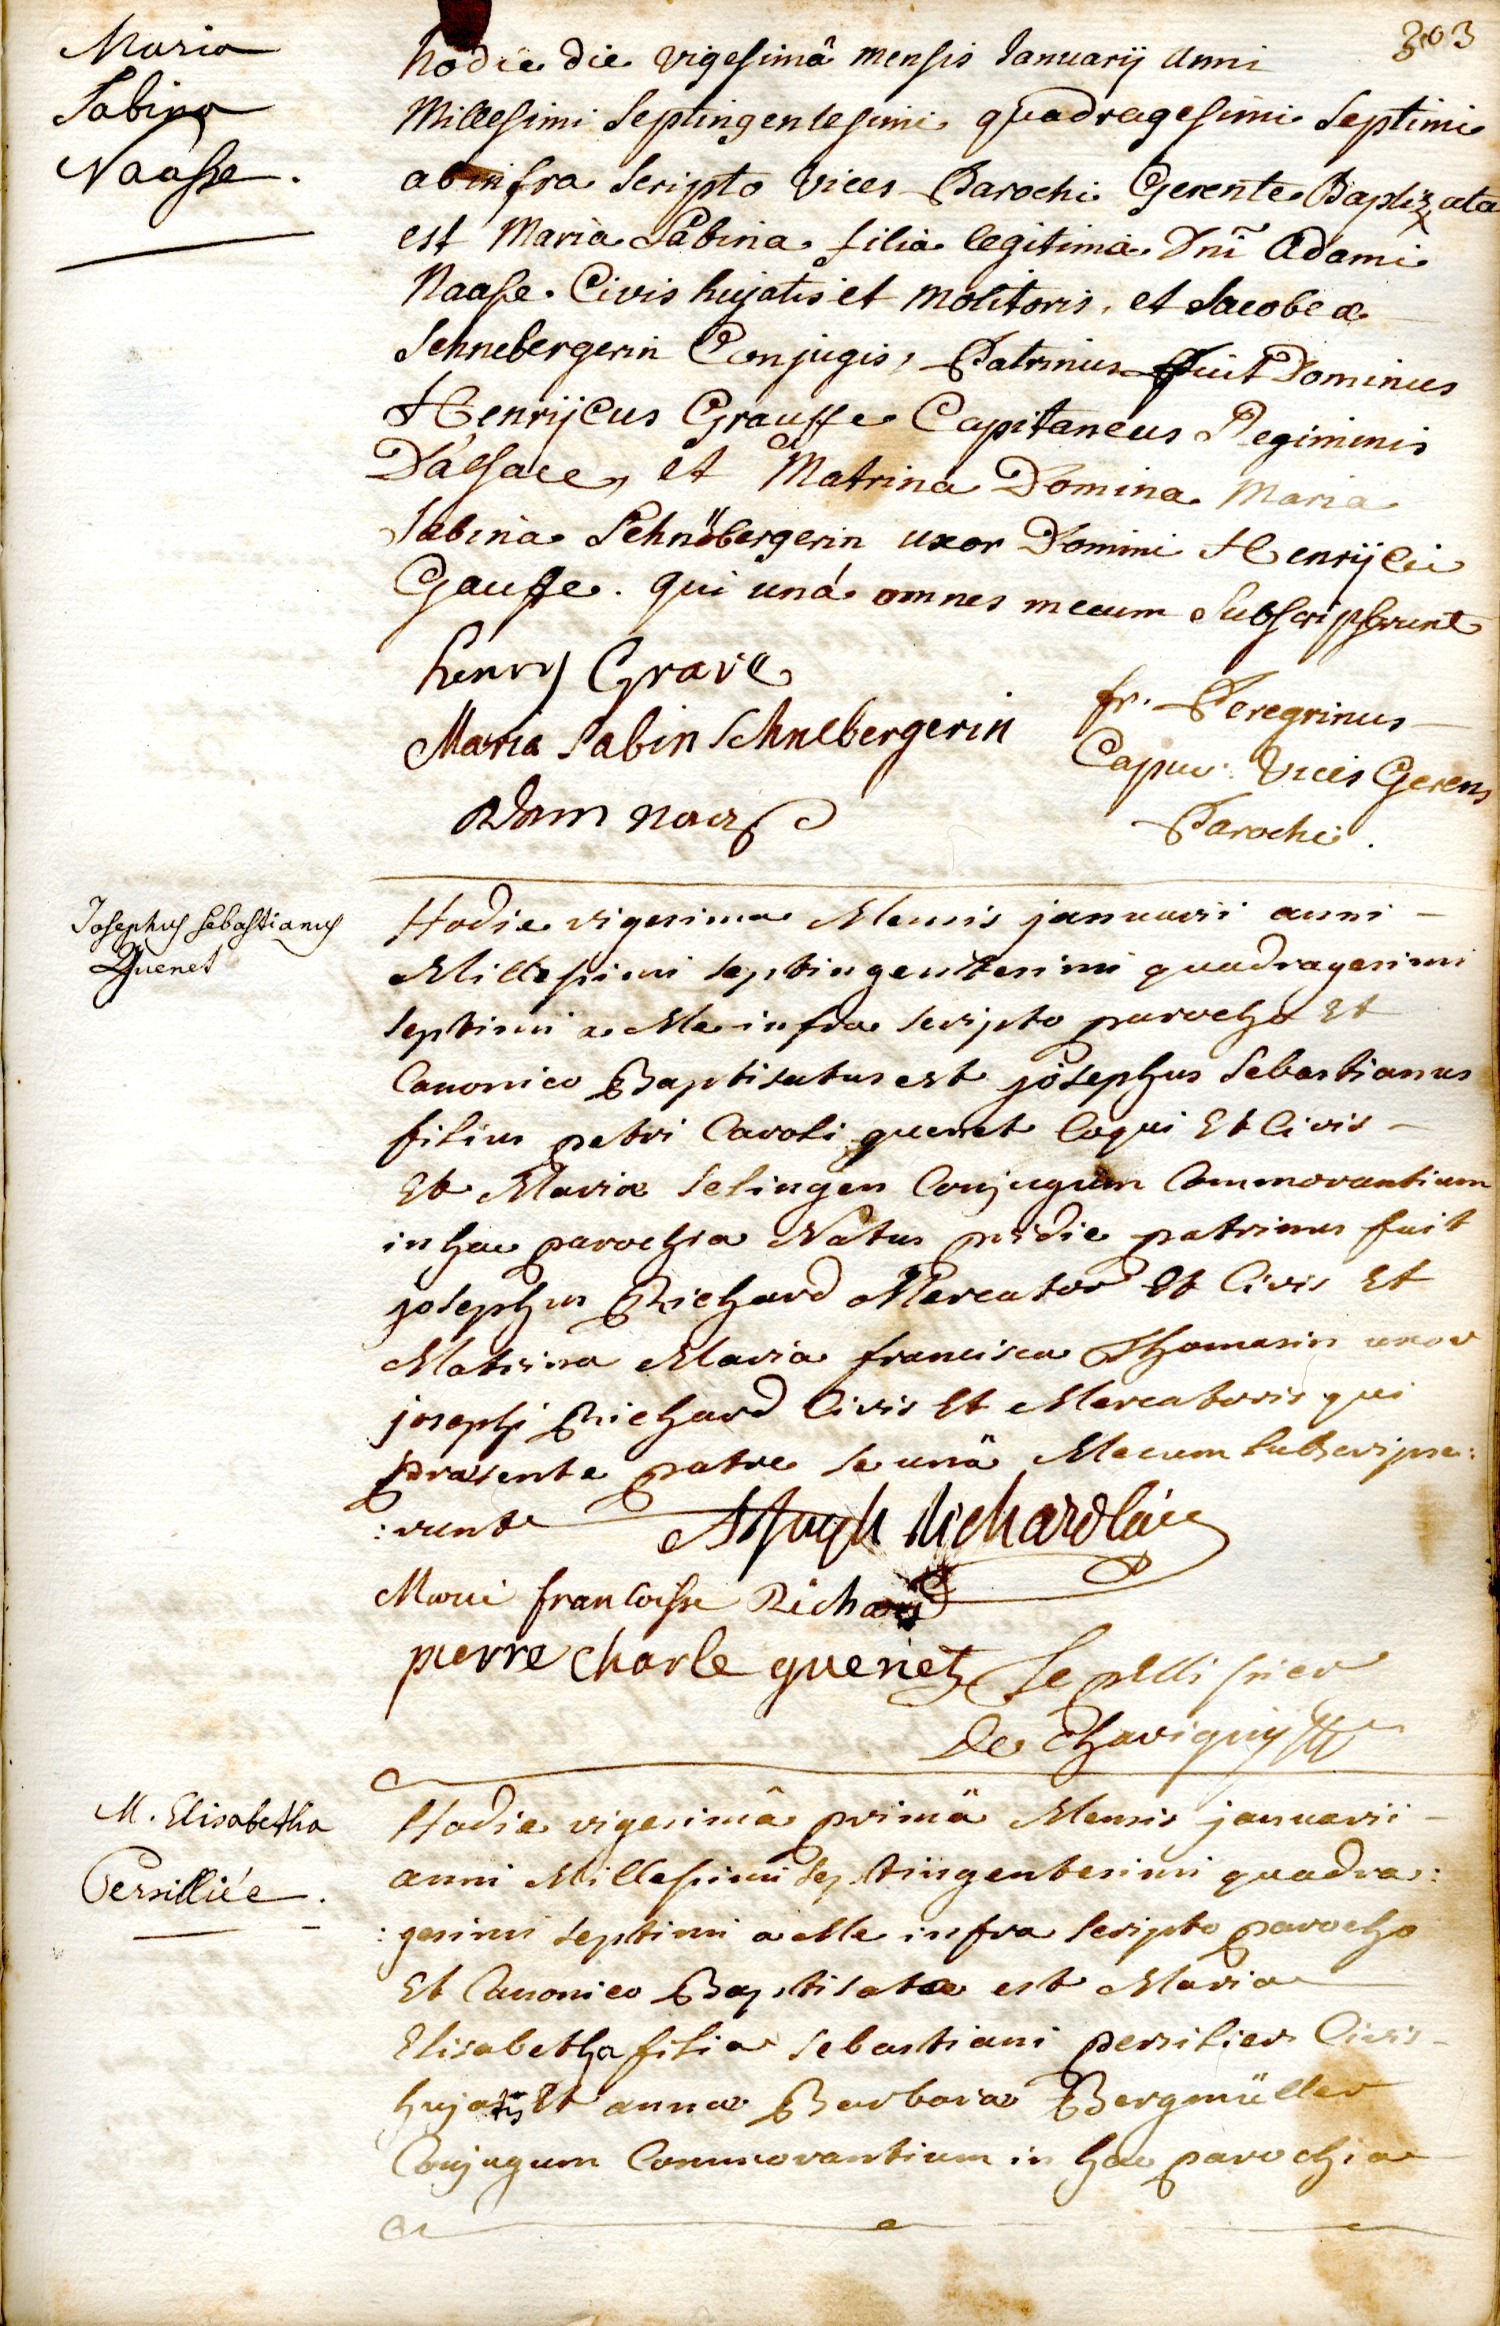 303
Maria
Sabina
Naasse.
hodie die vigesimâ mensis Januarij Anni
Millesimi Septingentesimi quadragesimi Septimi
ab infra Scripto vices Parochi Gerente Baptizata
est Maria Sabina filia legitima Dni Adami
Naasse Civis hujatis et Molitoris, et Jacobeæ
Schnebergerin Conjugis, Patrinus fuit Dominus
Henrijcus Grauffe Capitaneus Regiminis
D'alsace, et Matrina Domina Maria
Sabina Schnöbergerin uxor Domini Henrijci
Gauffe. qui uná omnes mecum Subscripserunt
henry Grave
Maria Sabin Schnebergerin
Adam Naas
fr. Peregrinus
Capuc. Vices Gerens
Parochi.
Josephus Sebastianus
Quenet
Hodie vigesima Mensis januarii anni -
Millesimi septingentesimi quadragesimi
septimi a Me infra scripto parocho Et
Canonico Baptisatus est josephus Sebastianus
filius petri Caroli quenet Coqui Et Civis -
Et Mariæ Selingen Conjugum Commorantium
in hac parochia Natus pridie patrinus fuit
josephus Richard Mercator Et Civis Et
Matrina Maria francisca Thomasin uxor
josephi Richard Civis Et Mercatoris qui
præsente patre se unâ Mecum subscripse:
:runt
Joseph Richard
francoisse Richard
pierre charle quenet
Le pellissier
De Chavigny
M. Elisabetha
Persilliée.
Hodie vigesimâ primâ Mensis januarii -
anni Millesimi Septingentesimi quadra:
:gesimi septimi a Me infra scripto parocho
Et Canonico Baptisata est Maria
Elisabetha filia sebastiani persilier Civis -
hujatis Et annæ Barbaræ Bergmüller
Conjugum Commorantium in hac parochia